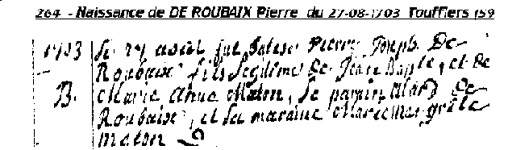 264 - Naissance de DE ROUBAIX Pierre du 27-08-1703 Toufflers 159
1703 Le 27 aoust fut batisé Pierre Joseph De
Roubaix fils légitime de Jean Bapte, et de
B. Marie Anne Maton, le parin Allard De
Roubaix, et la maraine Marie Margrite
maton